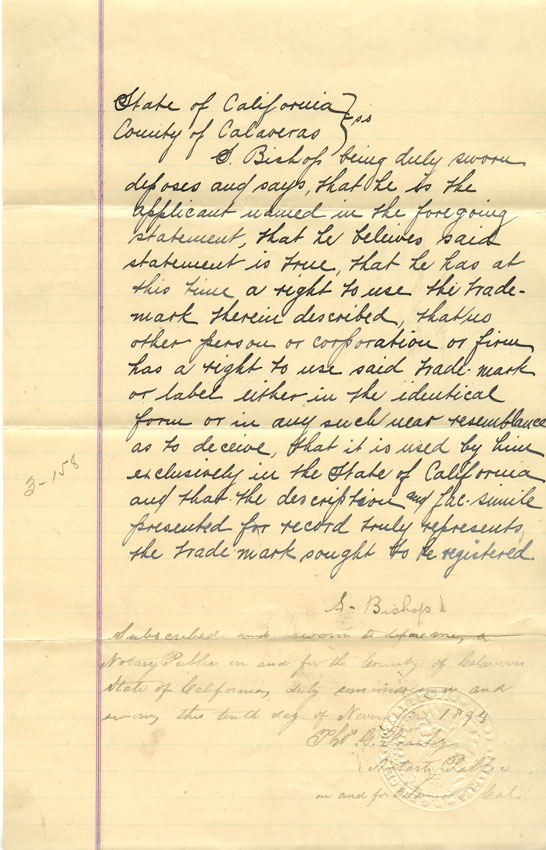 State of California } ss
County of Calaveras
S. Bishop being duly sworn
deposes and says, that he is the
applicant named in the foregoing
statement, that he belives said
statement is true, that he has at
this time a right to use the trade-
mark therein described, that no
other person or corporation or firm
has a right to use said trade-mark
or label either in the identical
form or in any such near resemblance
as to deceive, that it is used by him
exclusively in the State of California
and that the description and fac-simile
presented for record truly represents
the trade mark sought to be registered.
3-158
S. Bishop
Subscribed and sworn to before me, a
Notary Public in and for the County of Calaveras
State of California, duly commissioned and
sworn, this tenth day of November 1894
Thos.
Notary Public
in and for Calaveras Co. Cal.